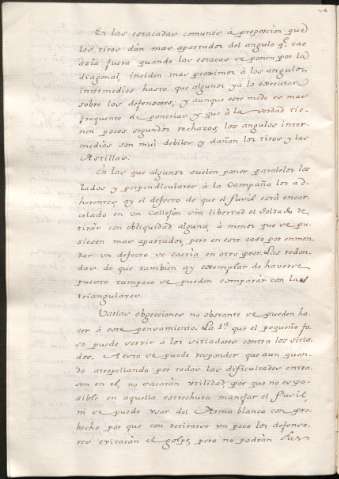 En las estacadas comunes á proporcion que
los tiros dán mas apartados del angulo qe. cae
ázia fuera quando las estacas se ponen por la
diagonal, inciden mas proximos á los angulos
intermedios hasta que algunos ya lo executan
sobre los defensores, y aunque este modo es mas
frequente de ponerlas y que á la verdad tie-
nen pocos segundos rechazos, los angulos inter-
medios son mui debiles y dañan los tiros y las
Astillas.
En las que algunos suelen poner paralelos los
lados y perpendiculares á la Campaña los ad-
herentes ay el defecto de que el fusil está encar-
celado en un Callejon sin libertad de
tirar con obliquidad alguna, á menos que se pu-
siesen mas apartados, pero en este caso por enmen-
dar un defecto se caeria en otro peor. Las redon-
das de que tambien ay exemplar de haverse
puesto tampoco se pueden comparár con las
triangulares.
Varias objecciones no obstante se pueden ha-
cer á este pensamiento. La 1ª. que el pequeño fo
so puede servir a los sitiadores contra los sitia-
dos. A esto se puede responder que aun quan-
do atropellando por todas las dificultades entra-
sen en el, no sacarán utilidad por que no es po-
sible en aquella estrechura manejar el fusil
ni se puede usar del Arma blanca con pro-
vecho por que con retirarse un poco los defenso-
res evitarán el golpe, pero no podrán